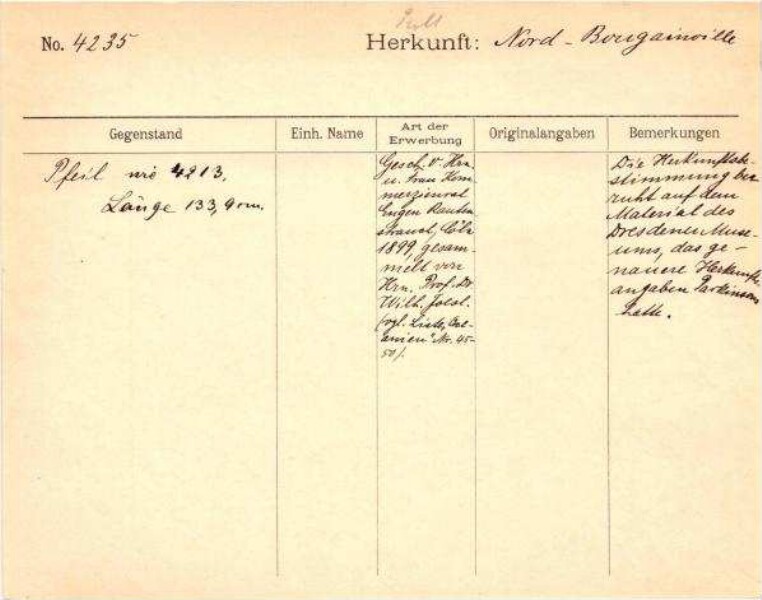 No. 4235
Herkunft: Nord-Bougainville
Gegenstand
Einh. Name
Art der
Erwerbung
Originalangaben
Bemerkungen
Pfeil wie 4213.
Länge 133,9 cm.
Gesch. v. Hrn.
u. Frau Kom-
merzienrat
Eugen Rauten-
strauch, Cöln
1899, gesam-
melt von
Hrn. Prof. Dr.
Wilh. Joest.
(vgl. Liste, Oce-
anien" Nr. 45-
50).
Die Herkunftsbe-
stimmung be-
ruht auf dem
Material des
Dresdener Muse-
ums, das ge-
nauere Herkunfts-
angaben Parkinsons
hatte.